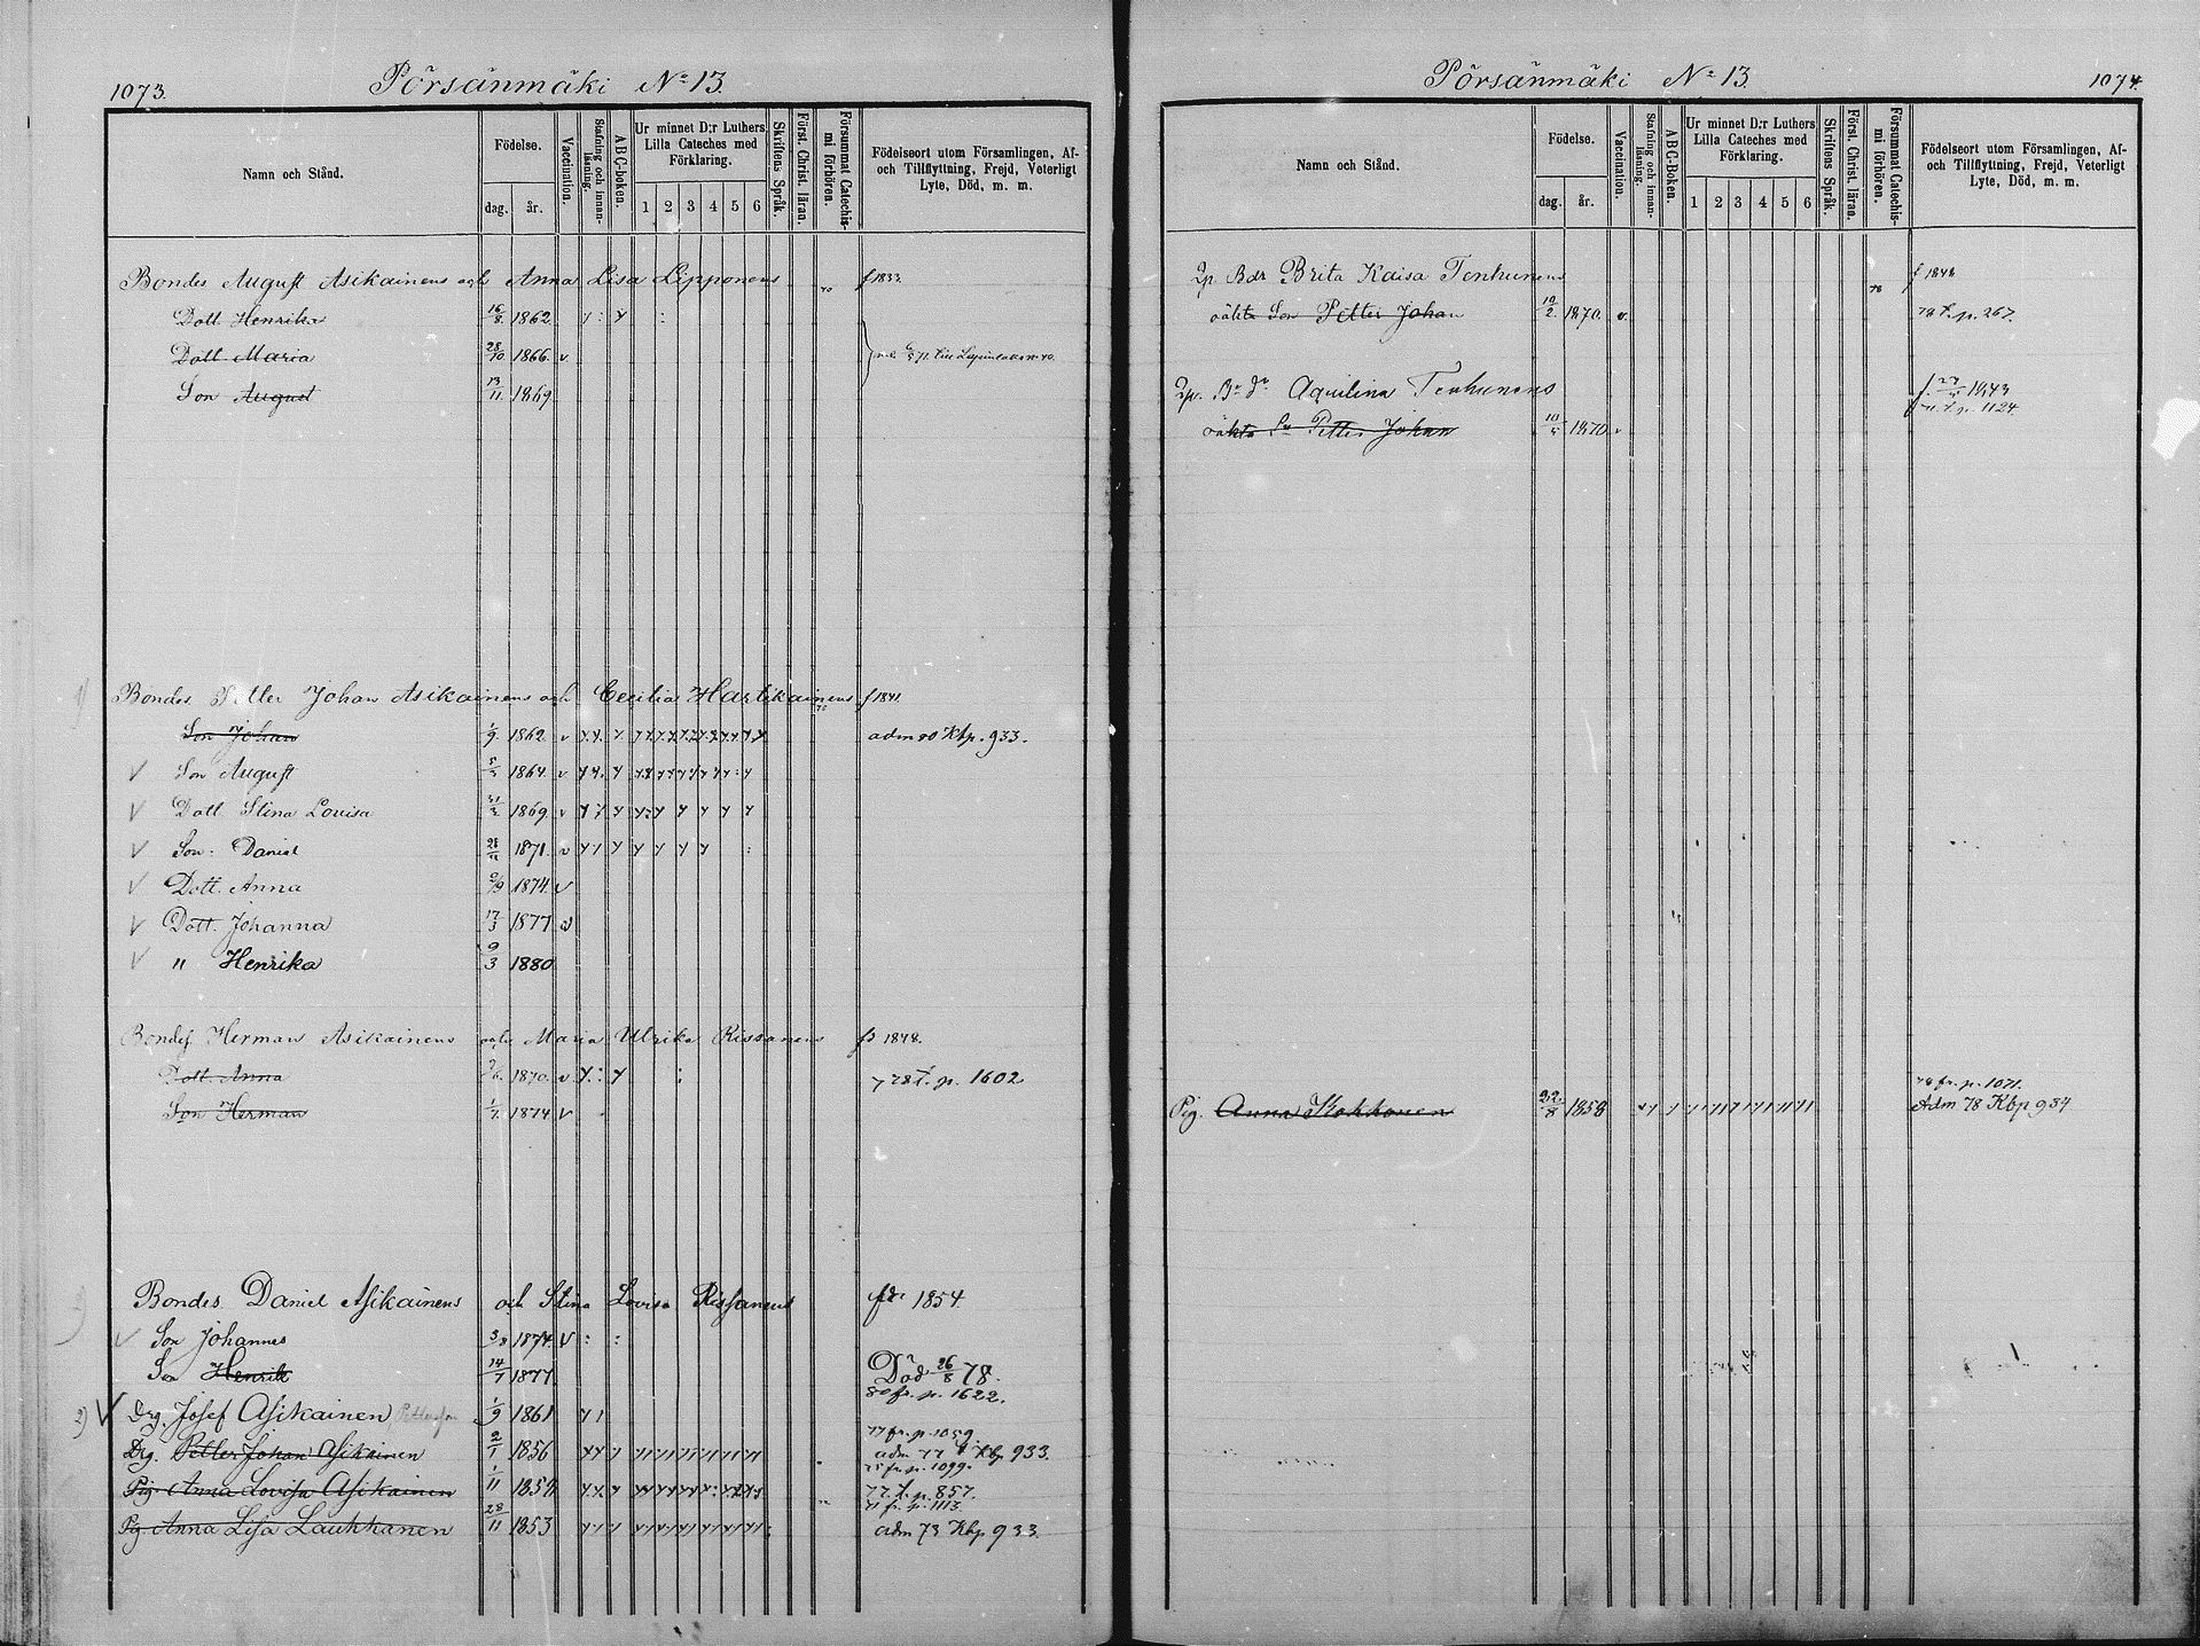 1073.
Pörsänmäki No 13.
Namn och Stånd.
Födelse.
dag.
år.
Vaccination.
Stafning och innan-
läsning.
ABC-boken.
Ur minnet D:r Luthers
Lilla Cateches med
Förklaring.
1 2 3 4 5 6
Skriftens Språk.
Först. Christ. läran.
Försummat Catechis-
mi förhören.
Födelseort utom Församlingen, Af-
och Tillflyttning, Frejd, Veterligt
Lyte, Död, m. m.
Bondes August Asikainens och Anna Lisa Lipponens f 1833.
Dott Henrika 16/8. 1862
Dott Maria 28/10. 1866. v.
Son August 13/11. 1869
Bondes Petter Johan Asikainens och Cecilia Hartikainens f 1841.
Son Johan 1/9. 1862 v adm 80 Kbp. 933.
Son August 1864. v
Dott Stina Lovisa 1869 v
Son Daniel 28/11 1871. v
Dott. Anna 2/9 1874. v
Dott. Johanna 17/3 1877 v
" Henrika 9/3 1880
Bondes Herman Asikainens och Maria Ulrika Rissanens 1848.
Dott Anna 1870. v 78 t. p. 1602
Son Herman 1/7. 1874 v
Bondes Daniel Asikainens och Stina Lovisa Rissanens fdr 1854.
Son Johannes 3/8 1874. v
Son Henrik 14/7 1877 Död 26/8 78.
80 fr. p. 1622.
2) Drg. Josef Asikainen 1/9 1861
77 fr. p. 1059
Drg. Petter Johan Asikainen 2/1 1856 adm 77 Kbp 933.
75 fr. p. 1099.
Pig. Anna Lovisa Asikainen 1/11 1858 77. t. p. 857.
71 fr. p. 1113.
Pig Anna Lisa Laukkanen 28/11 1853 adm 73 Kbp 933.
Pörsänmäki No 13.
1074.
Namn och Stånd.
Födelse.
dag.
år.
Vaccination.
Stafning och innan-
läsning.
ABC-Boken.
Ur minnet D:r Luthers
Lilla Cateches med
Förklaring.
1 2 3 4 5 6
Skriftens Språk.
Först. Christ. läran.
Försummat Catechis-
mi förhören.
Födelseort utom Församlingen, Af-
och Tillflyttning, Frejd, Veterligt
Lyte, Död, m. m.
Brita Kaisa Tenhunens f 1848
oäkta Son Petter Johan 19/2. 1870. v. 78 t. p. 267.
Aquilina Tenhunens 1843
t. p. 1124.
oäkta Sn Petter Johan 1870 v
78 fr. p. 1071.
Pig. Anna Kokkonen 22/8 1858 Adm 78 Kbp 934